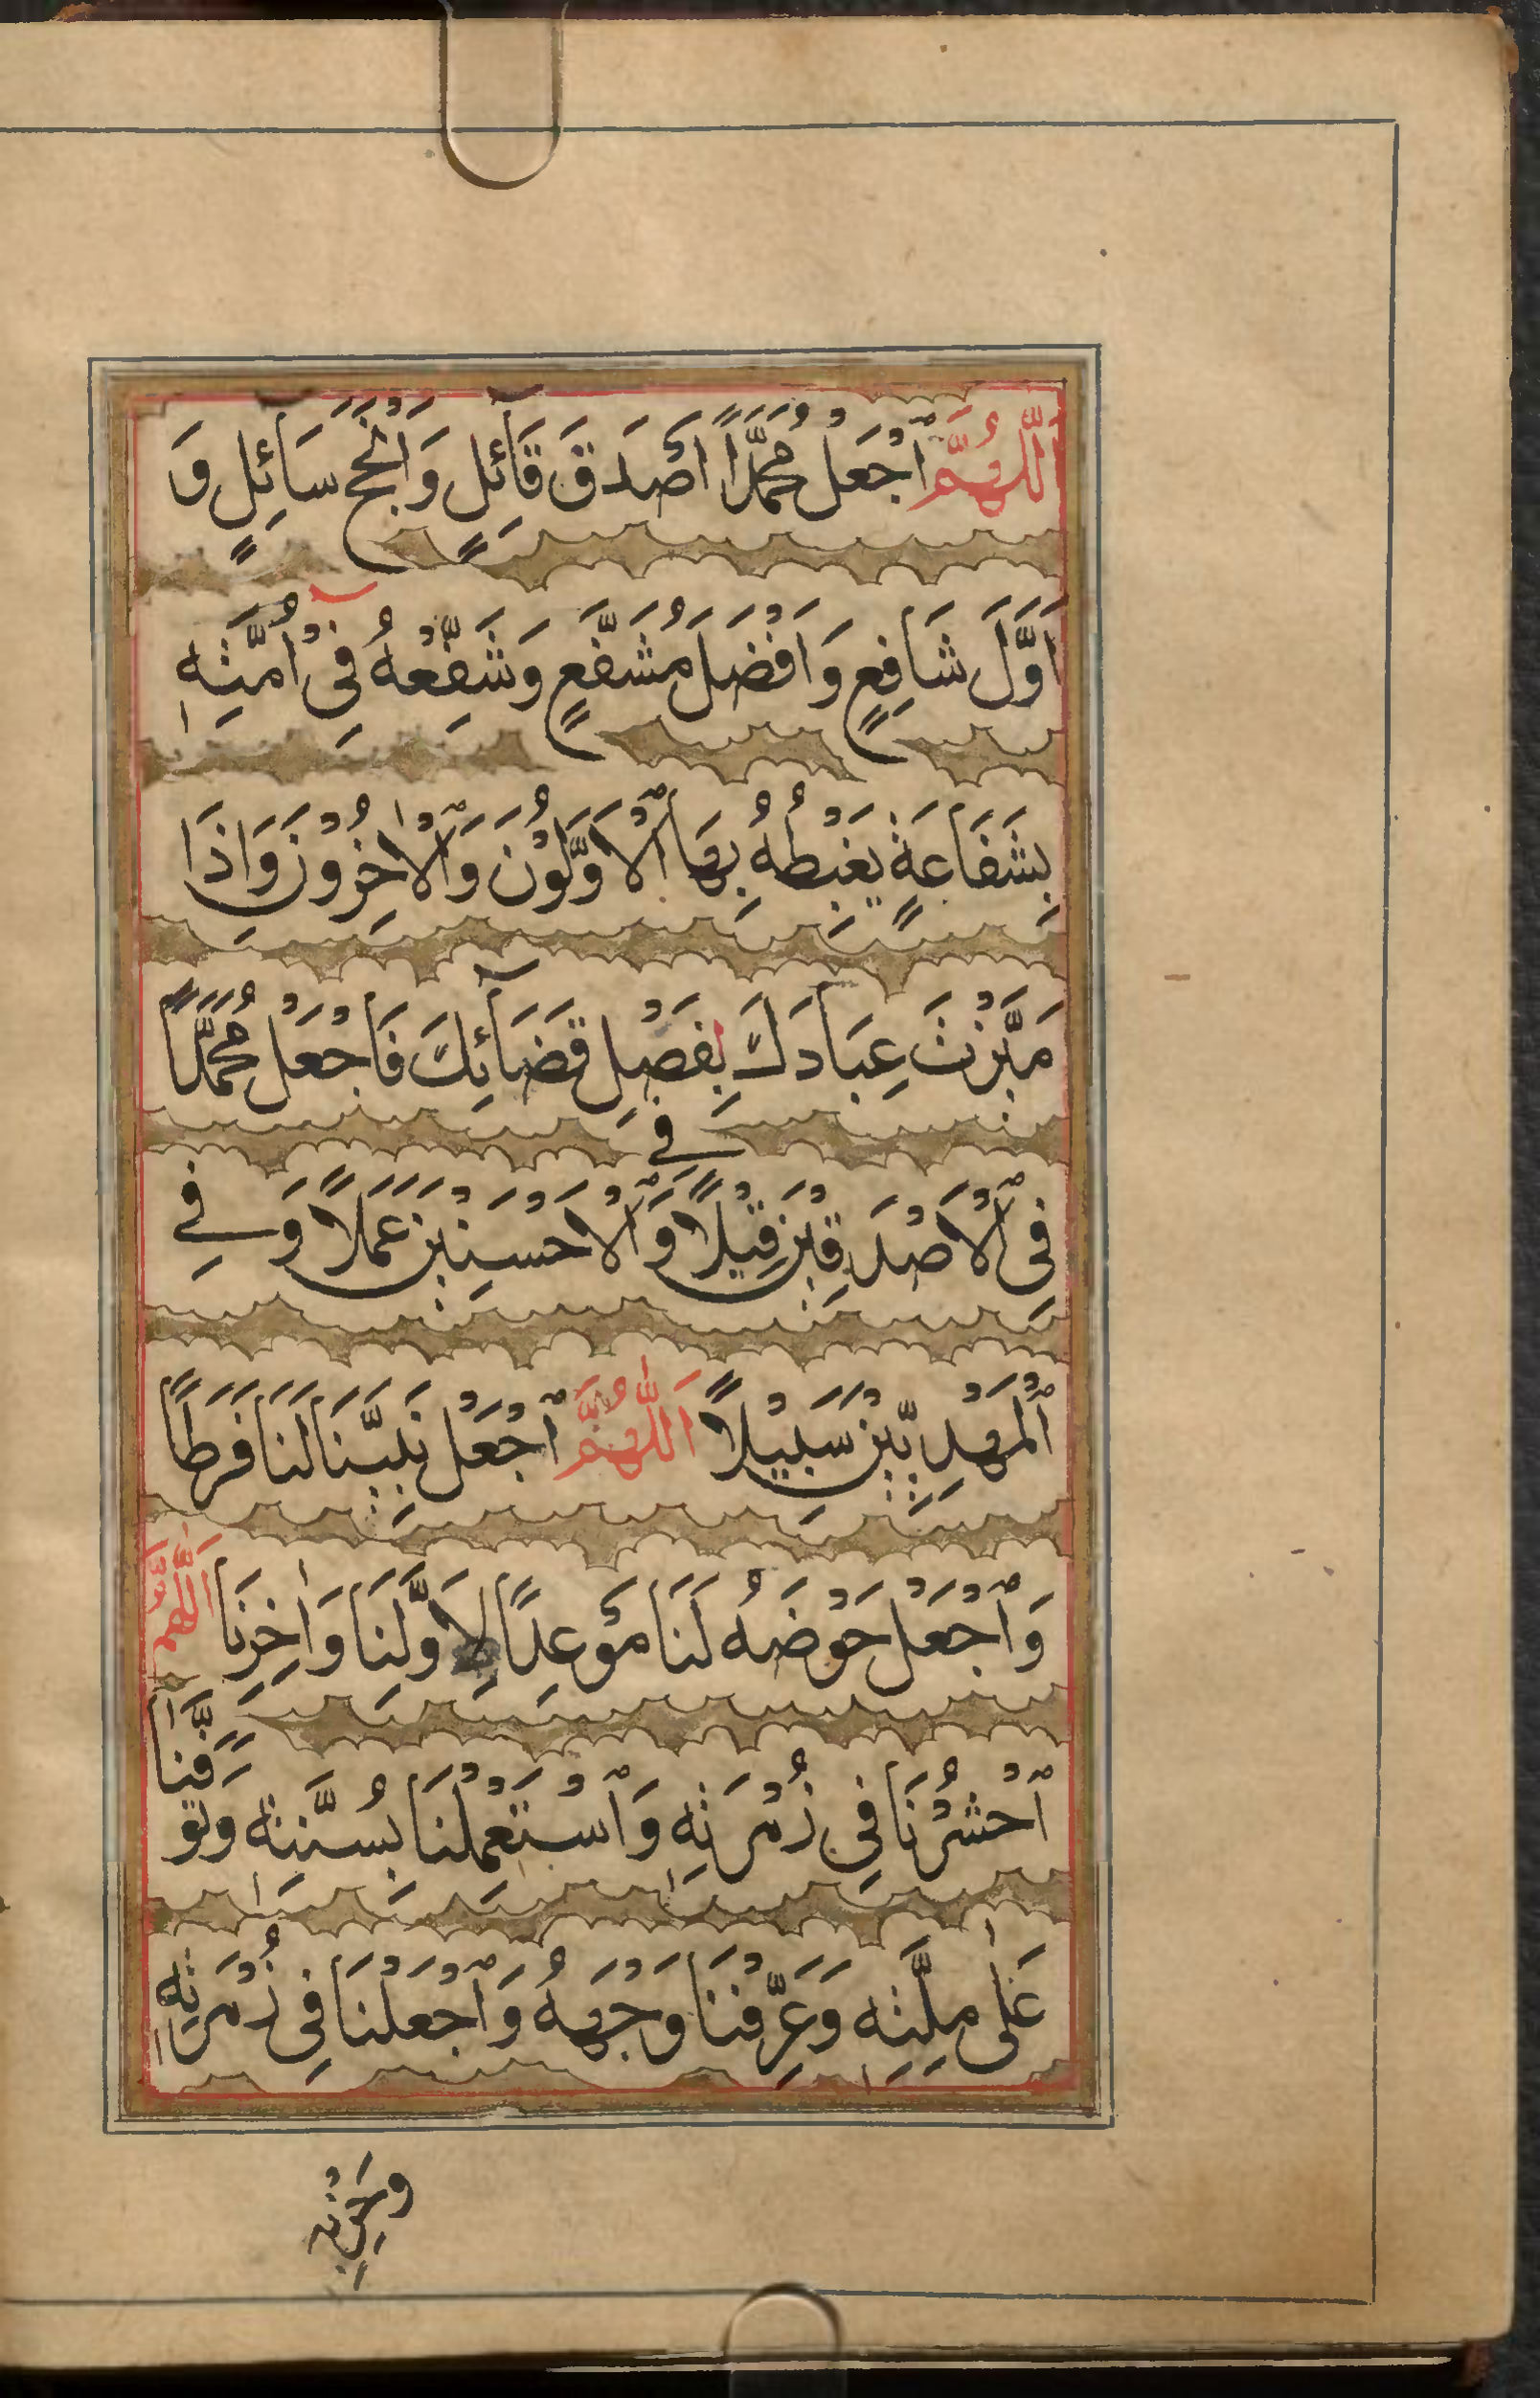 اَللّٰهُمَّ ٱجْعَلْ مُحَمَّدًا اَصْدَقَ قَآئِلٍ وَاَنْجَحَ سَائِلٍ وَ
اَوَّلَ شَافِعٍ وَاَفْضَلَ مُشَفَّعٍ وَشَفِّعْهُ فِيْ اُمَّتِهٖ
بِشَفَاعَةٍ يَغْبِطُهُ بِهَا ٱلْاَوَّلُوْنَ وَٱلْاٰخِرُوْنَ وَاِذَا
مَيَّزْتَ عِبَادَكَ بِفَصْلِ قَضَآئِكَ فَاجْعَلْ مُحَمَّدًا
فِي
فِي ٱلْاَصْدَقِيْنَ قِيْلًا وَٱلْاَحْسَنِيْنَ عَمَلًا وَفِي
ٱلْمَهْدِيِّيْنَ سَبِيْلًا اَللّٰهُمَّ ٱجْعَلْ نَبِيَّنَا لَنَا فَرَطًا
وَٱجْعَلْ حَوْضَهُ لَنَا مَوْعِدًا لِاَوَّلِنَا وَاٰخِرِنَا اَللّٰهُمَّ
ٱحْشُرْنَا فِي زُمْرَتِهٖ وَٱسْتَعْمِلْنَا بِسُنَّتِهٖ وَتَوَفَّنَا
عَلٰى مِلَّتِهٖ وَعَرِّفْنَا وَجْهَهُ وَٱجْعَلْنَا فِي زُمْرَتِهٖ
وَحِزْبِهٖ